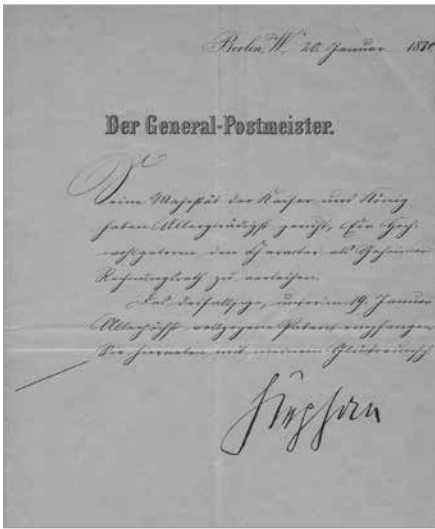 Berlin, W. 20. Januar 187
Der General-Postmeister.
Seine Majestät der Kaiser und König
haben Allergnädigst geruht, Eur Hoch-
wohlgeboren den Character als Geheimer
Rechnungsrath zu verleihen.
Das desfallsige, unterm 19. Januar
Allerhöchst vollzogene Patent empfangen
Sie hierneben mit meinem Glückwunsch
Stephan